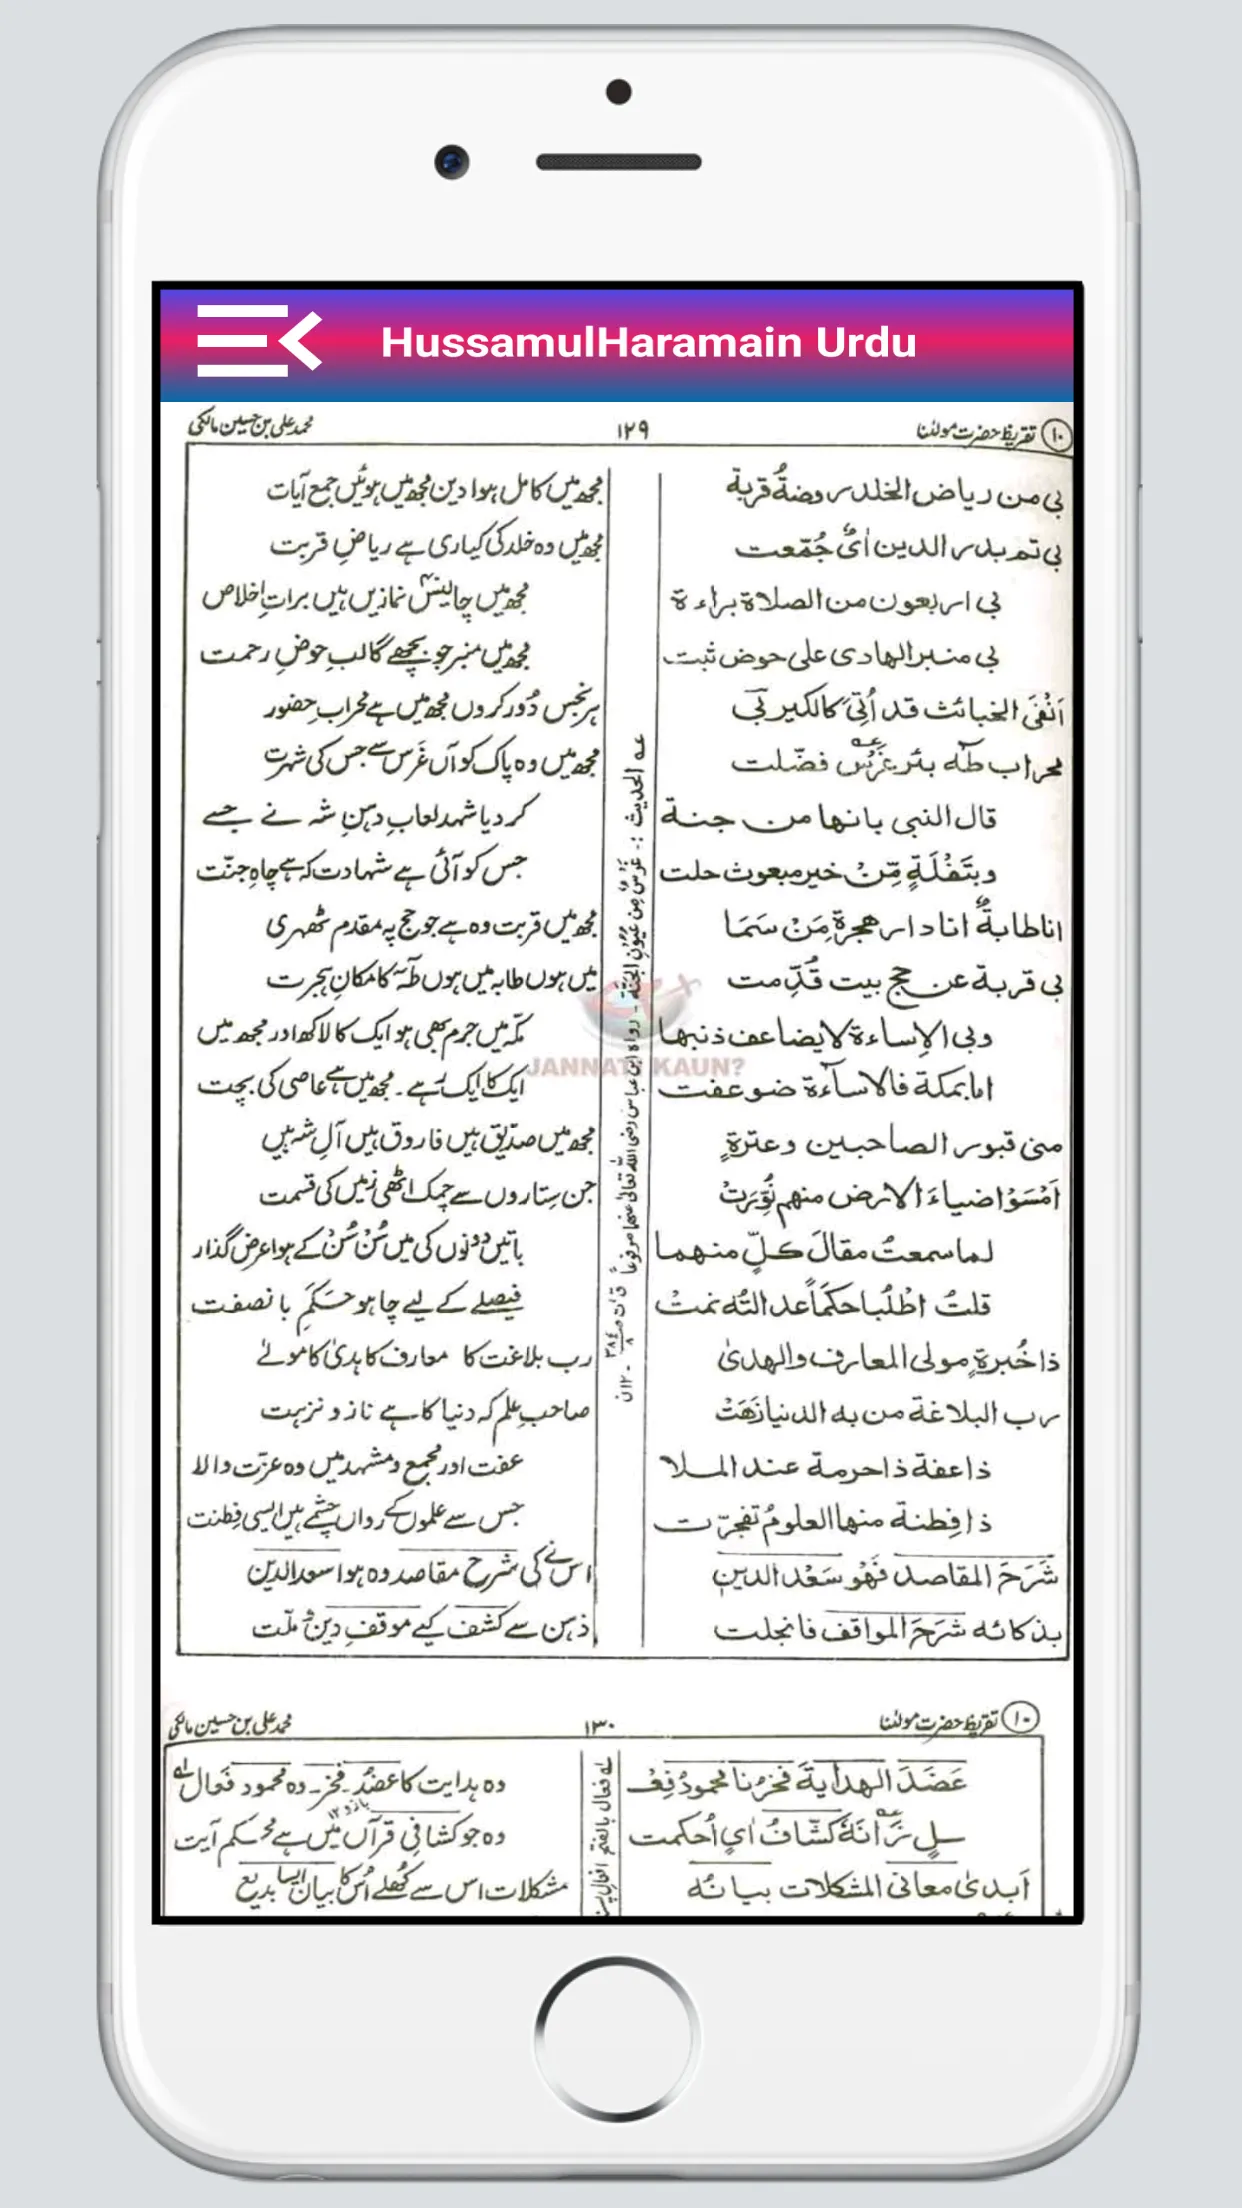 HussamulHaramain Urdu
۱۰ تقریظ حضرت مولٰنا
۱۲۹
محمد علی بن حسین مالکی
بی من ریاض الخلد روضةُ قربة
مجھ میں کامل ہوا دین مجھ میں ہوئیں جمع آیات
بی تم بدر الدین اٰیٌ جُمّعت
مجھ میں وہ خلد کی کیاری ہے ریاضِ قربت
بی اربعون من الصلاة براءة
مجھ میں چالیس نمازیں ہیں براتِ اخلاص
بی منبر الهادی علی حوض ثبت
مجھ میں منبر جو بچھے گا لبِ حوضِ رحمت
اَنْفَی الخبائث قد اُتِیَ کالکیر بی
ہر نجس دُور کروں مجھ میں ہے محرابِ حضور
محراب طٰه بئر غَرْسٌ فضّلت
مجھ میں وہ پاک کواں غَرس سے جس کی شہرت
قال النبی بانها من جنة
کر دیا شہد لعابِ دہنِ شہ نے جسے
وبتَفْلَةٍ مِّنْ خیر مبعوث حلت
جس کو آئی ہے شہادت کہ ہے چاہِ جنّت
انا طابةٌ انا دار هجرة مَنْ سَمَا
مجھ میں قربت وہ ہے جو حج پہ مقدم ٹھہری
بی قربة عن حج بیت قُدِّمت
میں ہوں طابہ میں ہوں طٰہٰ کا مکانِ ہجرت
وبی الاِساءة لا یضاعف ذنبها
مکّہ میں جرم بھی ہو ایک کا لاکھ اور مجھ میں
اما بمکة فالاساءة ضوعفت
ایک کا ایک ہے۔ مجھ میں ہے عاصی کی بچت
منی قبور الصاحبین وعترةٍ
مجھ میں صدّیق ہیں فاروق ہیں آلِ شہ ہیں
اَمْسَوْا ضیاءَ الارض منهم نُوِّرَتْ
جن ستاروں سے چمک اٹھی زمیں کی قسمت
لما سمعتُ مقالَ کلٍّ منهما
باتیں دونوں کی میں سُن سُن کے ہوا عرض گذار
قلتُ اطْلُبا حکَمًا عدالتُه نمتْ
فیصلے کے لیے چاہو حَکَمِ با نصفت
ذا خُبرةٍ مولی المعارف والهدیٰ
رب بلاغت کا معارف کا ہدیٰ کا مولےٰ
رب البلاغة من به الدنیا زهَتْ
صاحبِ علم کہ دنیا کا ہے ناز و نزہت
ذا عفة ذا حرمة عند الملا
عفت اور مجمع و مشہد میں وہ عزّت والا
ذا فِطنة منها العلومُ تفجرّت
جس سے علموں کے رواں چشمے ہیں ایسی فِطنت
شَرَحَ المقاصد فَهْو سَعْد الدین
اس نے کی شرح مقاصد وہ ہوا سعد الدین
بذکائه شَرَحَ المواقف فانجلت
ذہن سے کشف کیے موقفِ دین و ملّت
عه الحدیث :- غَرْسٌ مِن عُیُونِ الجَنَّة۔ رواه ابن عباس رضی اللہ تعالٰی عنهما مرفوعاً
JANNATI KAUN?
۱۰ تقریظ حضرت مولٰنا
۱۳۰
محمد علی بن حسین مالکی
عَضَدَ الهدایةَ فخرُنا محمودُ فِعْـ
وہ ہدایت کا عضُد۔ فخر۔ وہ محمود فَعال
وہ جو کشافِ قرآں میں ہے محکم آیت
ـلٍ زَانَهٗ کشّافُ اٰیٍ اُحکمت
اَبدیٰ معانی المشکلات بیانُه
مشکلات اس سے کُھلے اُس کا بیان ایسا بدیع